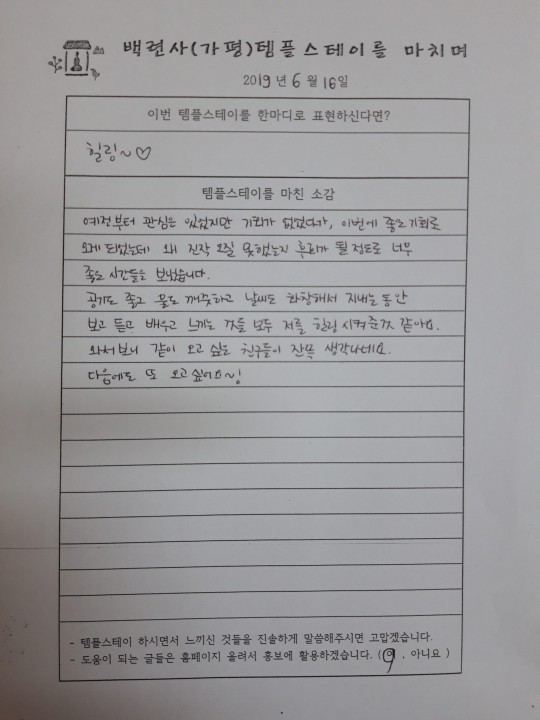 백련사(가평)템플스테이를 마치며
2019년 6월 16일
이번 템플스테이를 한마디로 표현하신다면?
힐링~♡
템플스테이를 마친 소감
예전부터 관심은 있었지만 기회가 없었다가, 이번에 좋은기회로
오게 되었는데 왜 진작 오질 못했는지 후회가 될 정도로 너무
좋은 시간들을 보냈습니다.
공기도 좋고 물도 깨끗하고 날씨도 화창해서 지내는 동안
보고 듣고 배우고 느끼는 것들 모두 저를 힐링 시켜준것 같아요.
와서보니 같이 오고 싶은 친구들이 잔뜩 생각나네요.
다음에도 또 오고싶어요~!
- 템플스테이 하시면서 느끼신 것들을 진솔하게 말씀해주시면 고맙겠습니다.
- 도움이 되는 글들은 홈페이지 올려서 홍보에 활용하겠습니다. ( , 아니요 )